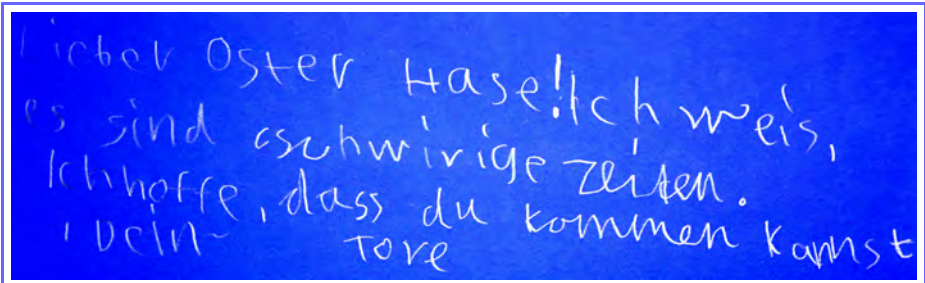 Lieber Oster Hase! Ich weis,
es sind schwirige zeiten.
Ich hoffe, dass du kommen kannst
Dein Tore